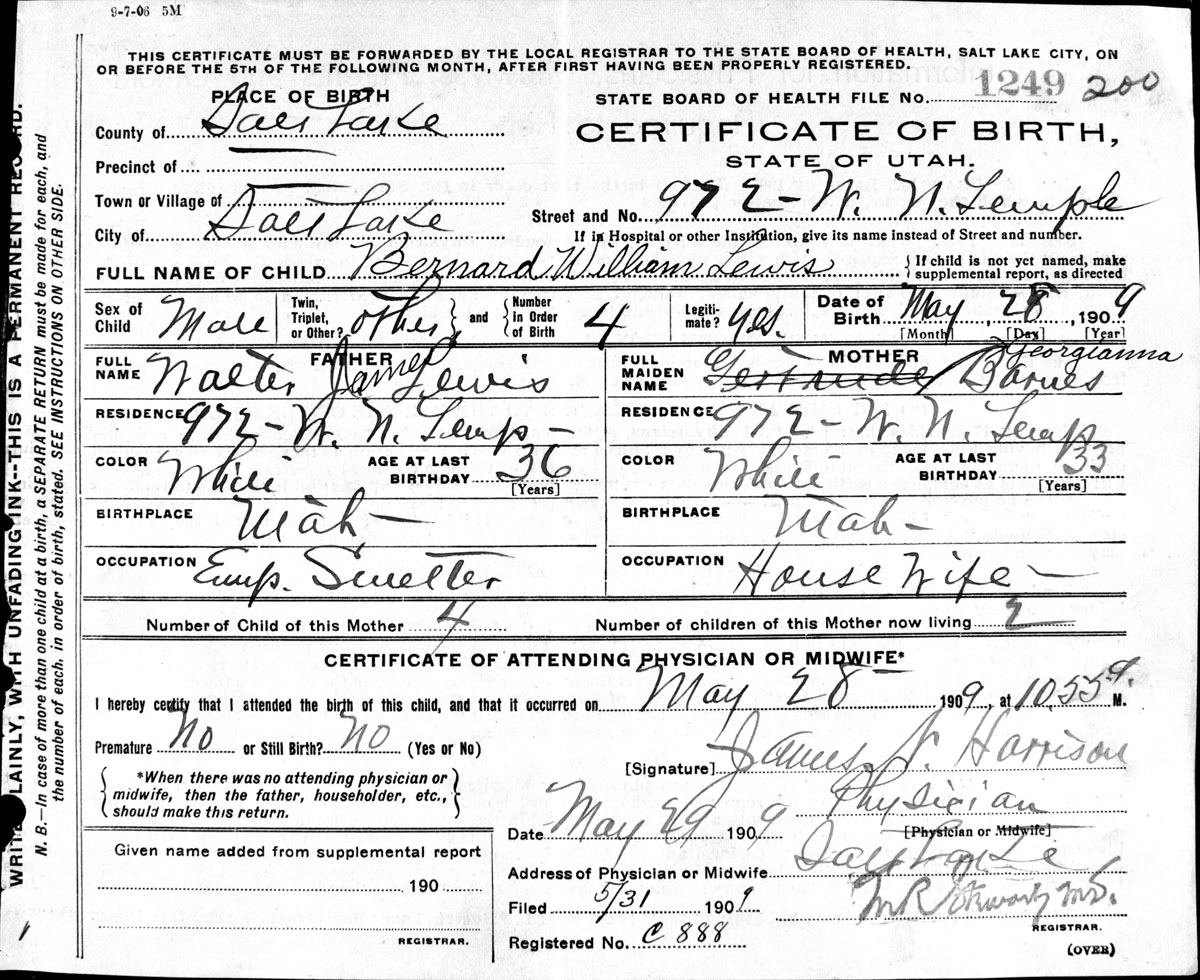 9-7-06 5M
THIS CERTIFICATE MUST BE FORWARDED BY THE LOCAL REGISTRAR TO THE STATE BOARD OF HEALTH, SALT LAKE CITY, ON
OR BEFORE THE 5TH OF THE FOLLOWING MONTH, AFTER FIRST HAVING BEEN PROPERLY REGISTERED.
PLACE OF BIRTH
STATE BOARD OF HEALTH FILE NO. 1249 200
County of Salt Lake
CERTIFICATE OF BIRTH,
STATE OF UTAH.
Precinct of
Town or Village of
City of Salt Lake
Street and No. 972 - W. N. Temple
If in Hospital or other Institution, give its name instead of Street and number.
FULL NAME OF CHILD Bernard William Lewis
{ If child is not yet named, make
supplemental report, as directed
Sex of Child Male
Twin, Triplet, or Other? other } and { Number in Order of Birth 4
Legitimate? Yes.
Date of Birth May 28, 1909
[Month] [Day] [Year]
FATHER
FULL NAME Walter James Lewis
RESIDENCE 972 - W. N. Temp -
COLOR White AGE AT LAST BIRTHDAY 36
[Years]
BIRTHPLACE Utah -
OCCUPATION Emp. Smelter
MOTHER
FULL MAIDEN NAME Gertrude Georgianna Barnes
RESIDENCE 972 - W. N. Temp
COLOR White AGE AT LAST BIRTHDAY 33
[Years]
BIRTHPLACE Utah -
OCCUPATION House Wife -
Number of Child of this Mother 4
Number of children of this Mother now living 2
CERTIFICATE OF ATTENDING PHYSICIAN OR MIDWIFE*
I hereby certify that I attended the birth of this child, and that it occurred on May 28 1909, at 10.55 a. M.
Premature No or Still Birth? No (Yes or No)
{ *When there was no attending physician or
midwife, then the father, householder, etc.,
should make this return. }
[Signature] James N. Harrison
Physician
[Physician or Midwife]
Date May 29 1909
Address of Physician or Midwife Salt Lake
Given name added from supplemental report
190
REGISTRAR.
Filed 5/31 1909
M.D.
REGISTRAR.
Registered No. C 888
(OVER)
WRITE PLAINLY, WITH UNFADING INK--THIS IS A PERMANENT RECORD.
N. B.—In case of more than one child at a birth, a SEPARATE RETURN must be made for each, and
the number of each, in order of birth, stated. SEE INSTRUCTIONS ON OTHER SIDE.